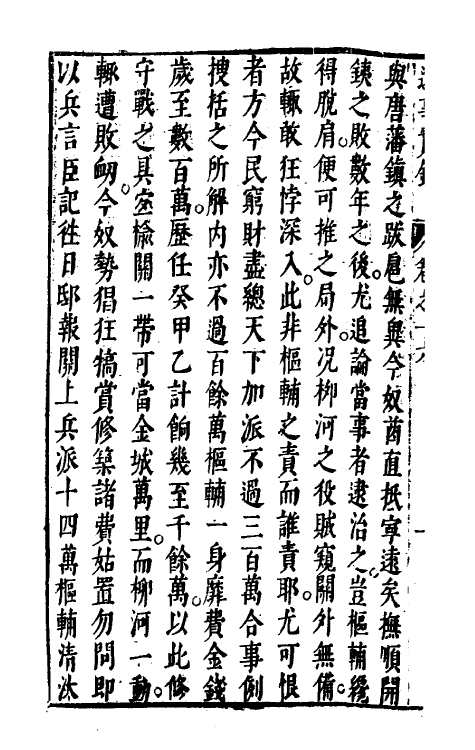 與唐藩鎮之跋扈無異今奴酋直抵寧遠矣撫順開
鐵之敗數年之後尤追論當事者逮治之豈樞輔纔
得脫肩便可推之局外况柳河之役賊窺關外無備
故輒敢狂悖深入此非樞輔之責而誰責耶尤可恨
者方今民窮財盡總天下加派不過三百萬合事例
搜括之所解內亦不過百餘萬樞輔一身靡費金錢
歲至數百萬歷任癸甲乙計餉幾至千餘萬以此修
守戰之具室榆關一帶可當金城萬里而柳河一動
輒遭敗衂今奴勢猖狂犒賞修築諸費姑置勿問即
以兵言臣記徃日邸報關上兵派十四萬樞輔清汰